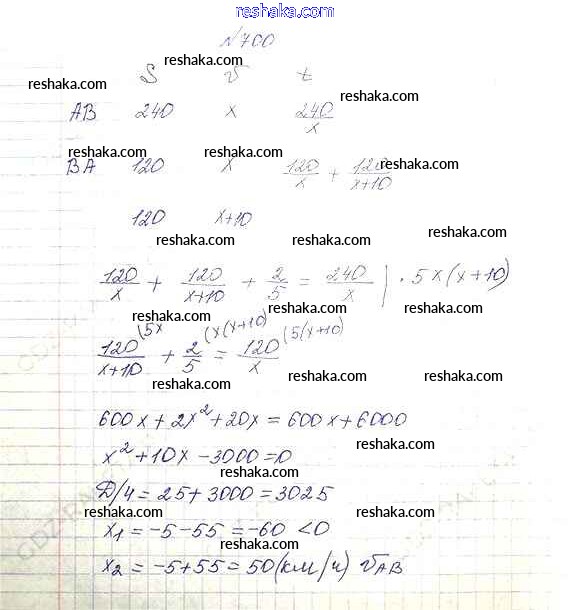 reshaka.com
№700
reshaka.com
S v t
reshaka.com reshaka.com
AB 240 x 240/x
reshaka.com reshaka.com reshaka.com
BA 120 x 120/x + 120/(x+10)
120 x+10
reshaka.com reshaka.com reshaka.com
120/x + 120/(x+10) + 2/5 = 240/x | · 5x(x+10)
reshaka.com reshaka.com
120/(x+10) (5x + 2/5 (x(x+10) = 120/x (5(x+10)
reshaka.com reshaka.com reshaka.com
600x + 2x² + 20x = 600x + 6000
reshaka.com
x² + 10x - 3000 = 0
reshaka.com
D/4 = 25 + 3000 = 3025
reshaka.com reshaka.com
x₁ = -5 - 55 = -60 < 0
reshaka.com
x₂ = -5 + 55 = 50 (км/ч) v AB
reshaka.com